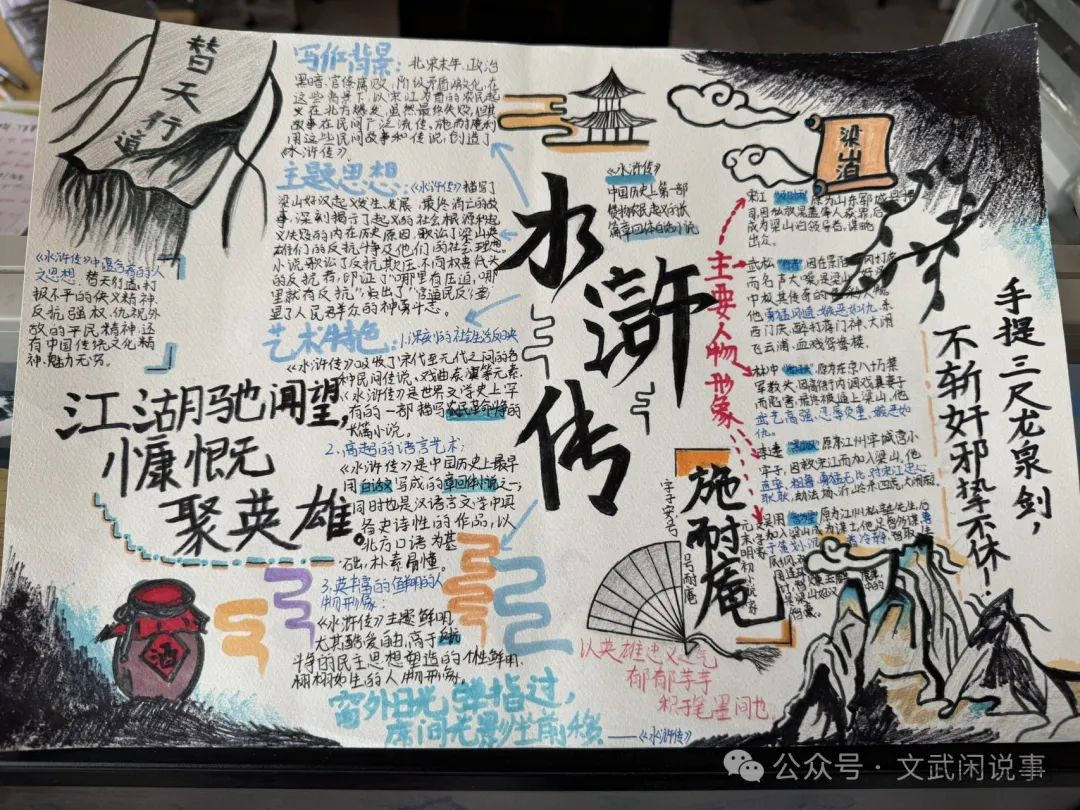 替天行道
写作背景：北宋末年，政治
黑暗，官僚腐败，阶级矛盾激化，在
这些背景下，以宋江为首的农民起
义在北方爆发，虽然最终失败，但其
故事在民间广泛流传。施耐庵利
用这些民间故事和传说，创造了
《水浒传》。
主题思想：《水浒传》描写了
梁山好汉起义发生、发展、最终消亡的故
事，深刻揭示了起义的社会根源和起
义失败的内在历史原因，歌讼了梁山英
雄们的反抗斗争及他们的社会理想。
小说歌讼了反抗欺压、不向权贵低头
的反抗者，印证了"哪里有压迫，哪
里就有反抗"，突出了"官逼民反"，
里了人民群众的神勇斗志。
《水浒传》中蕴含着的人
文思想：替天行道，打
报不平的侠义精神，
反抗强权，仇视外
敌的平民精神，还
有中国传统文化精
神，魅力无穷。
艺术特色：1.深刻的社会生活反映
《水浒传》吸收了宋代至元代之间的各
种民间传说、戏曲表演等元素，
《水浒传》是世界文学史上罕
有的一部描写农民革命斗争的
长篇小说。
2.高超的语言艺术：
《水浒传》是中国历史上最早
用白话文写成的章回体小说之一，
同时也是汉语言文学中具
备史诗性的作品，以
北方口语为基
础，朴素易懂。
3.英丰富的鲜明的人
物形象：
《水浒传》主题鲜明，
尤其酷爱自由，高于
争的民主思想塑造的个性鲜明，
栩栩如生的人物形象。
江湖驰闻望，
慷慨
聚英雄。
酒
窗外日光弹指过，
席间花影坐前移
——《水浒传》
水浒传
《水浒传》
中国历史上第一部
篇章回体白话小说
梁山
主要人物形象
宋江
原为山东郓城
司，因私放晁盖等人获罪，后
成为梁山泊领导者，谋略
出众。
武松
而名声大噪，是梁山好汉
中极其传奇的
他勇猛刚直、嫉恶如仇，杀
西门庆、醉打蒋门神、大闹
飞云浦、血戏鸳鸯楼。
林冲
原为东京八十万禁
军教头，因高衙内调戏其妻子
而陷害，最终被逼上梁山，他
武艺高强、忍辱负重、嫉恶如
仇。
李逵
原系江州牢城营小
牢子，因救宋江而加入梁山，他
直率、粗鲁、勇猛无比，对宋江忠心
耿耿，劫法场、沂山岭杀四虎、大闹
吴用
施耐庵
字子安号
号耐庵
元末明初小说家
文学家
以英雄忠义之气
郁郁芊芊
积于笔墨间也。
手提三尺龙泉剑，
不斩奸邪挚不休！
公众号·文武闲说事